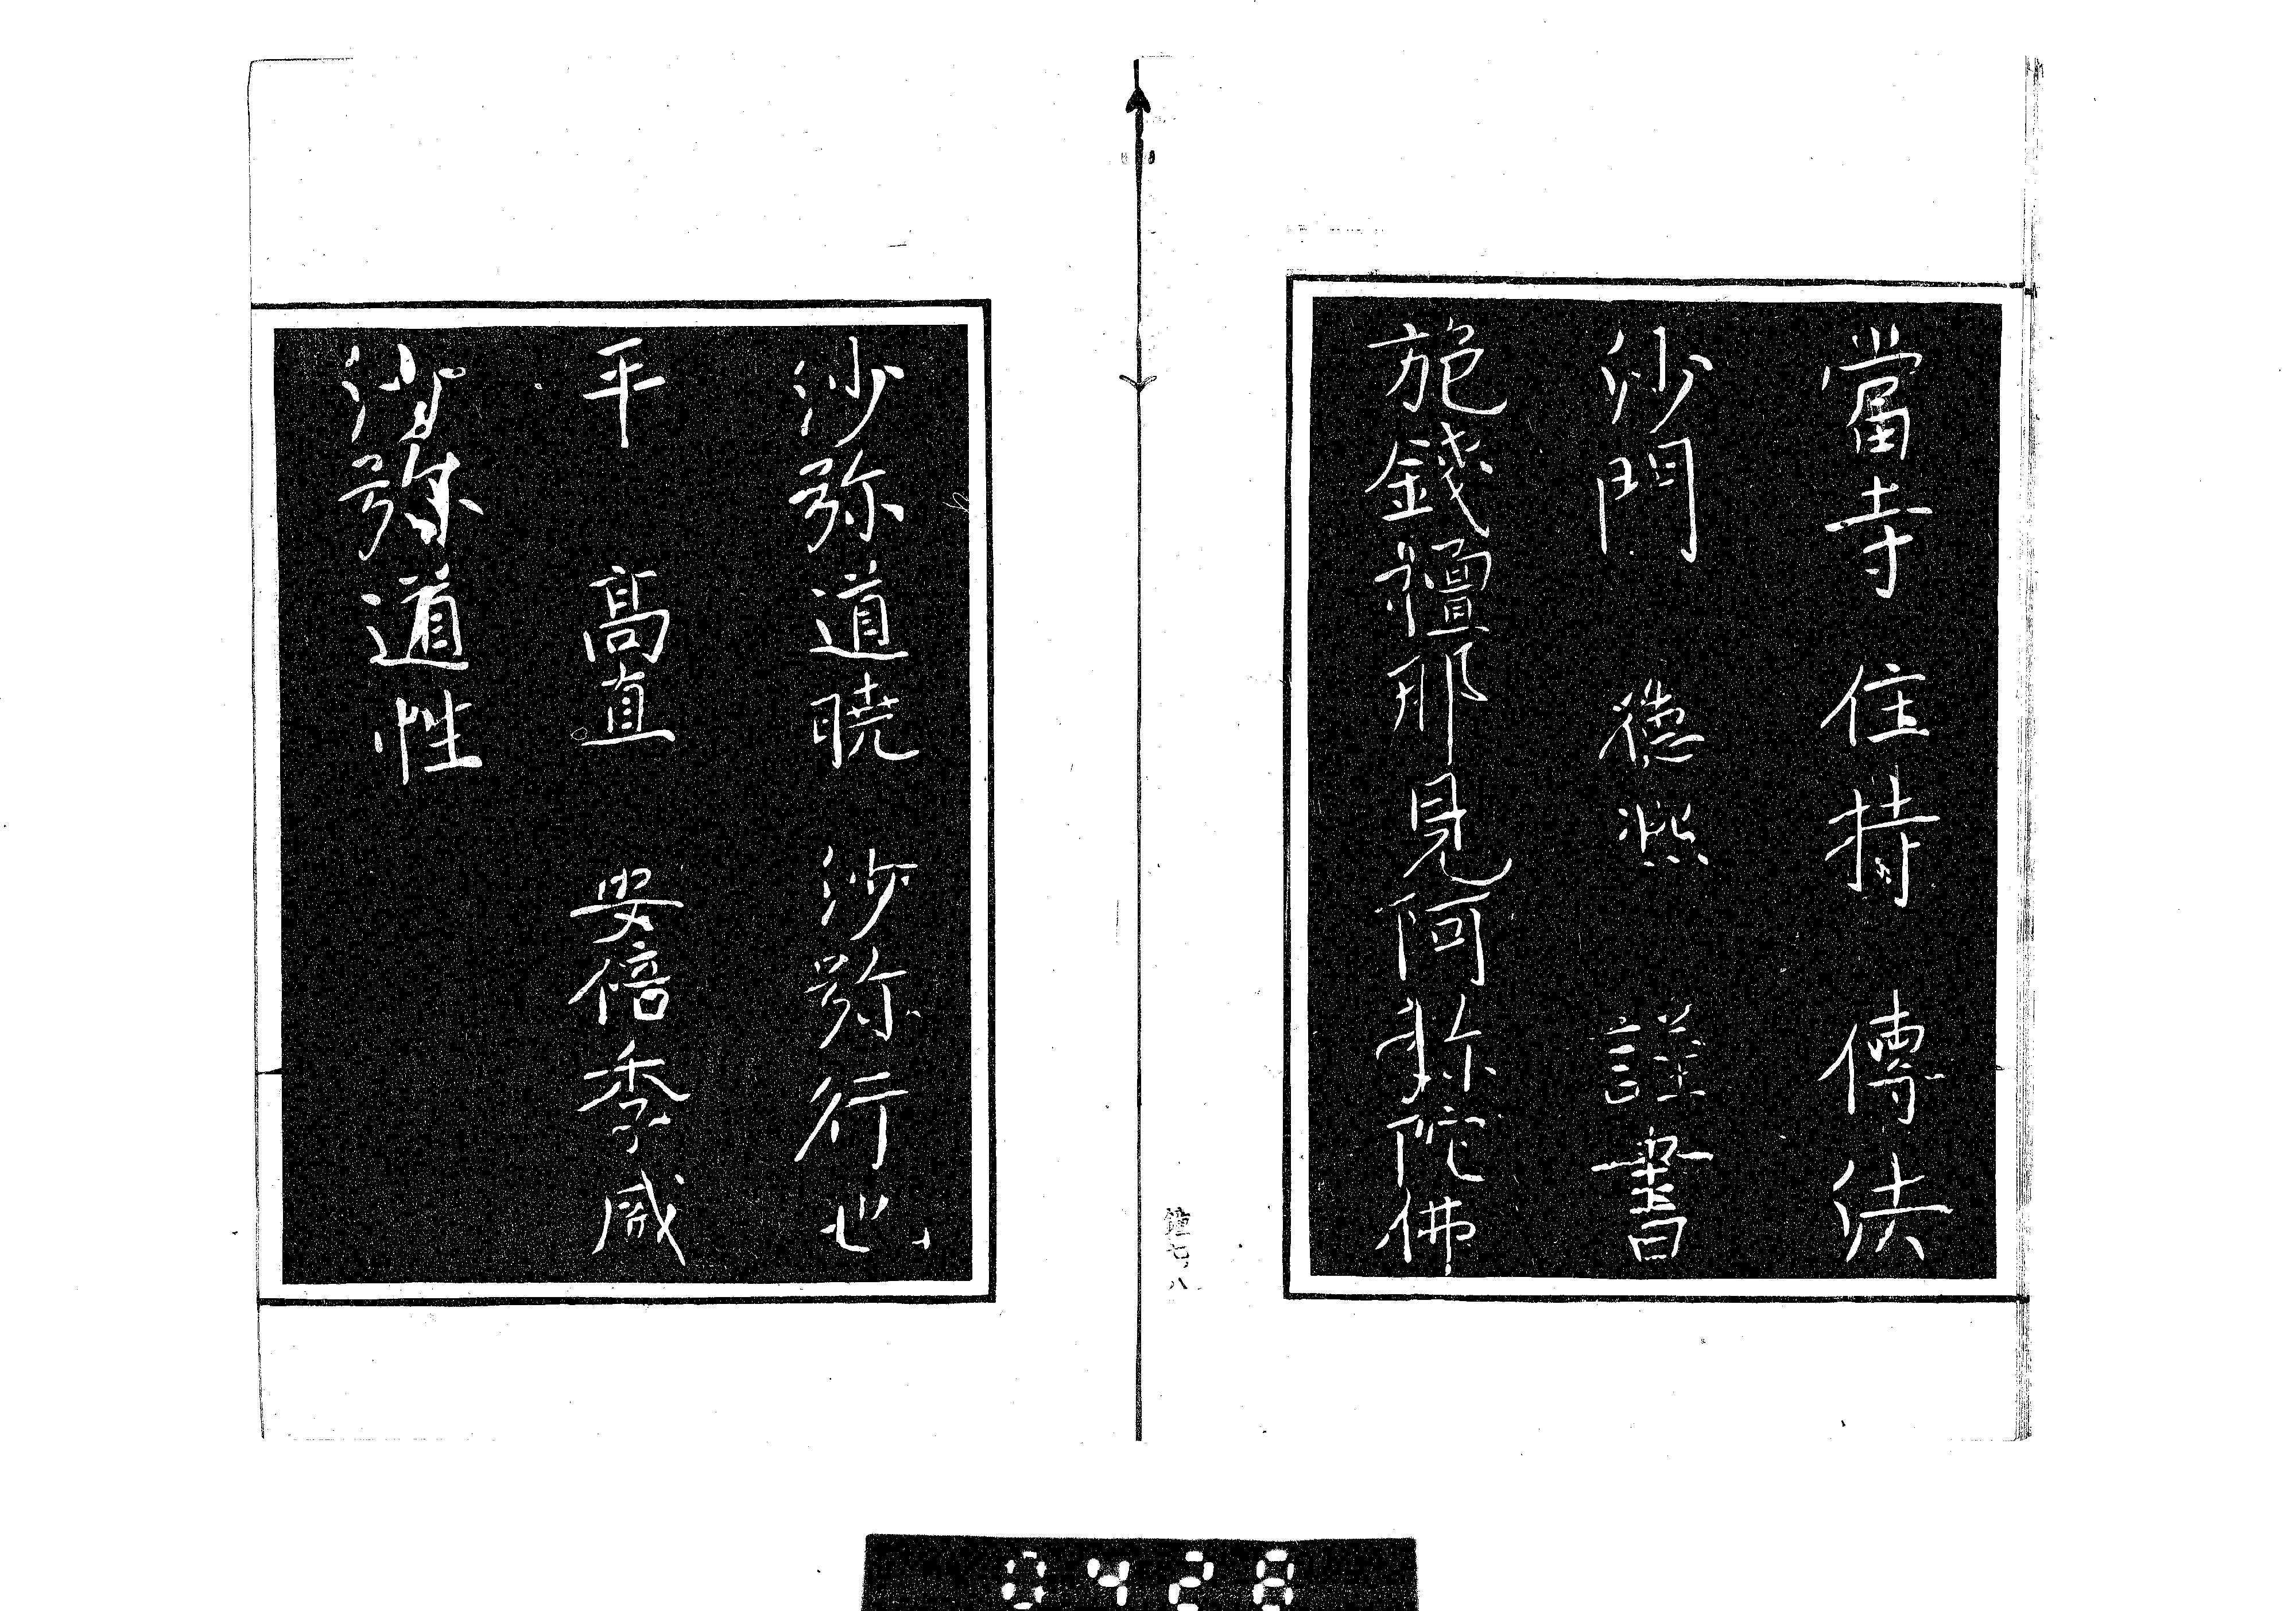 當寺 住持 傳法
沙門 德 謹書
施錢檀那見阿弥陀佛
鐘七ノ八
沙弥道暁 沙弥行心
平 高直 安倍季威
沙弥道性
0428